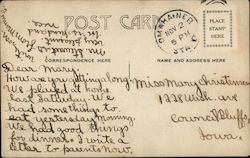 POST CARD
OMAHA, NEB.
NOV
5 PM
STA. C
PLACE
STAMP
HERE
CORRESPONDENCE
NAME AND ADDRESS HERE
Dear Mary
How are you getting along.
We played at home
last Saturday. We
had something to
eat yesterday morning.
We had good things
for dinner. I write a
letter to parents now.
Miss Mary Christiansen
1238 Wash. ave
Council Bluffs
Iowa.